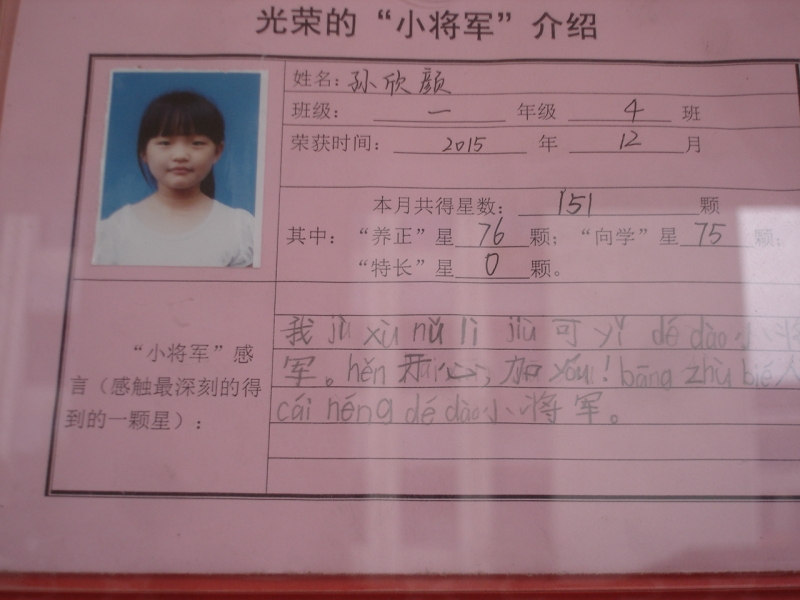 光荣的“小将军”介绍
姓名：孙欣颜
班级： 一 年级 4 班
荣获时间： 2015 年 12 月
本月共得星数： 151 颗
其中：“养正”星 76 颗；“向学”星 75 颗；
“特长”星 0 颗。
“小将军”感
言（感触最深刻的得
到的一颗星）：
我 jù xù nǔ lì jiù 可 yǐ dé dào 小将
军。hěn 开心，加 yóu！bāng zhù bié 人
cái néng dé dào 小将军。